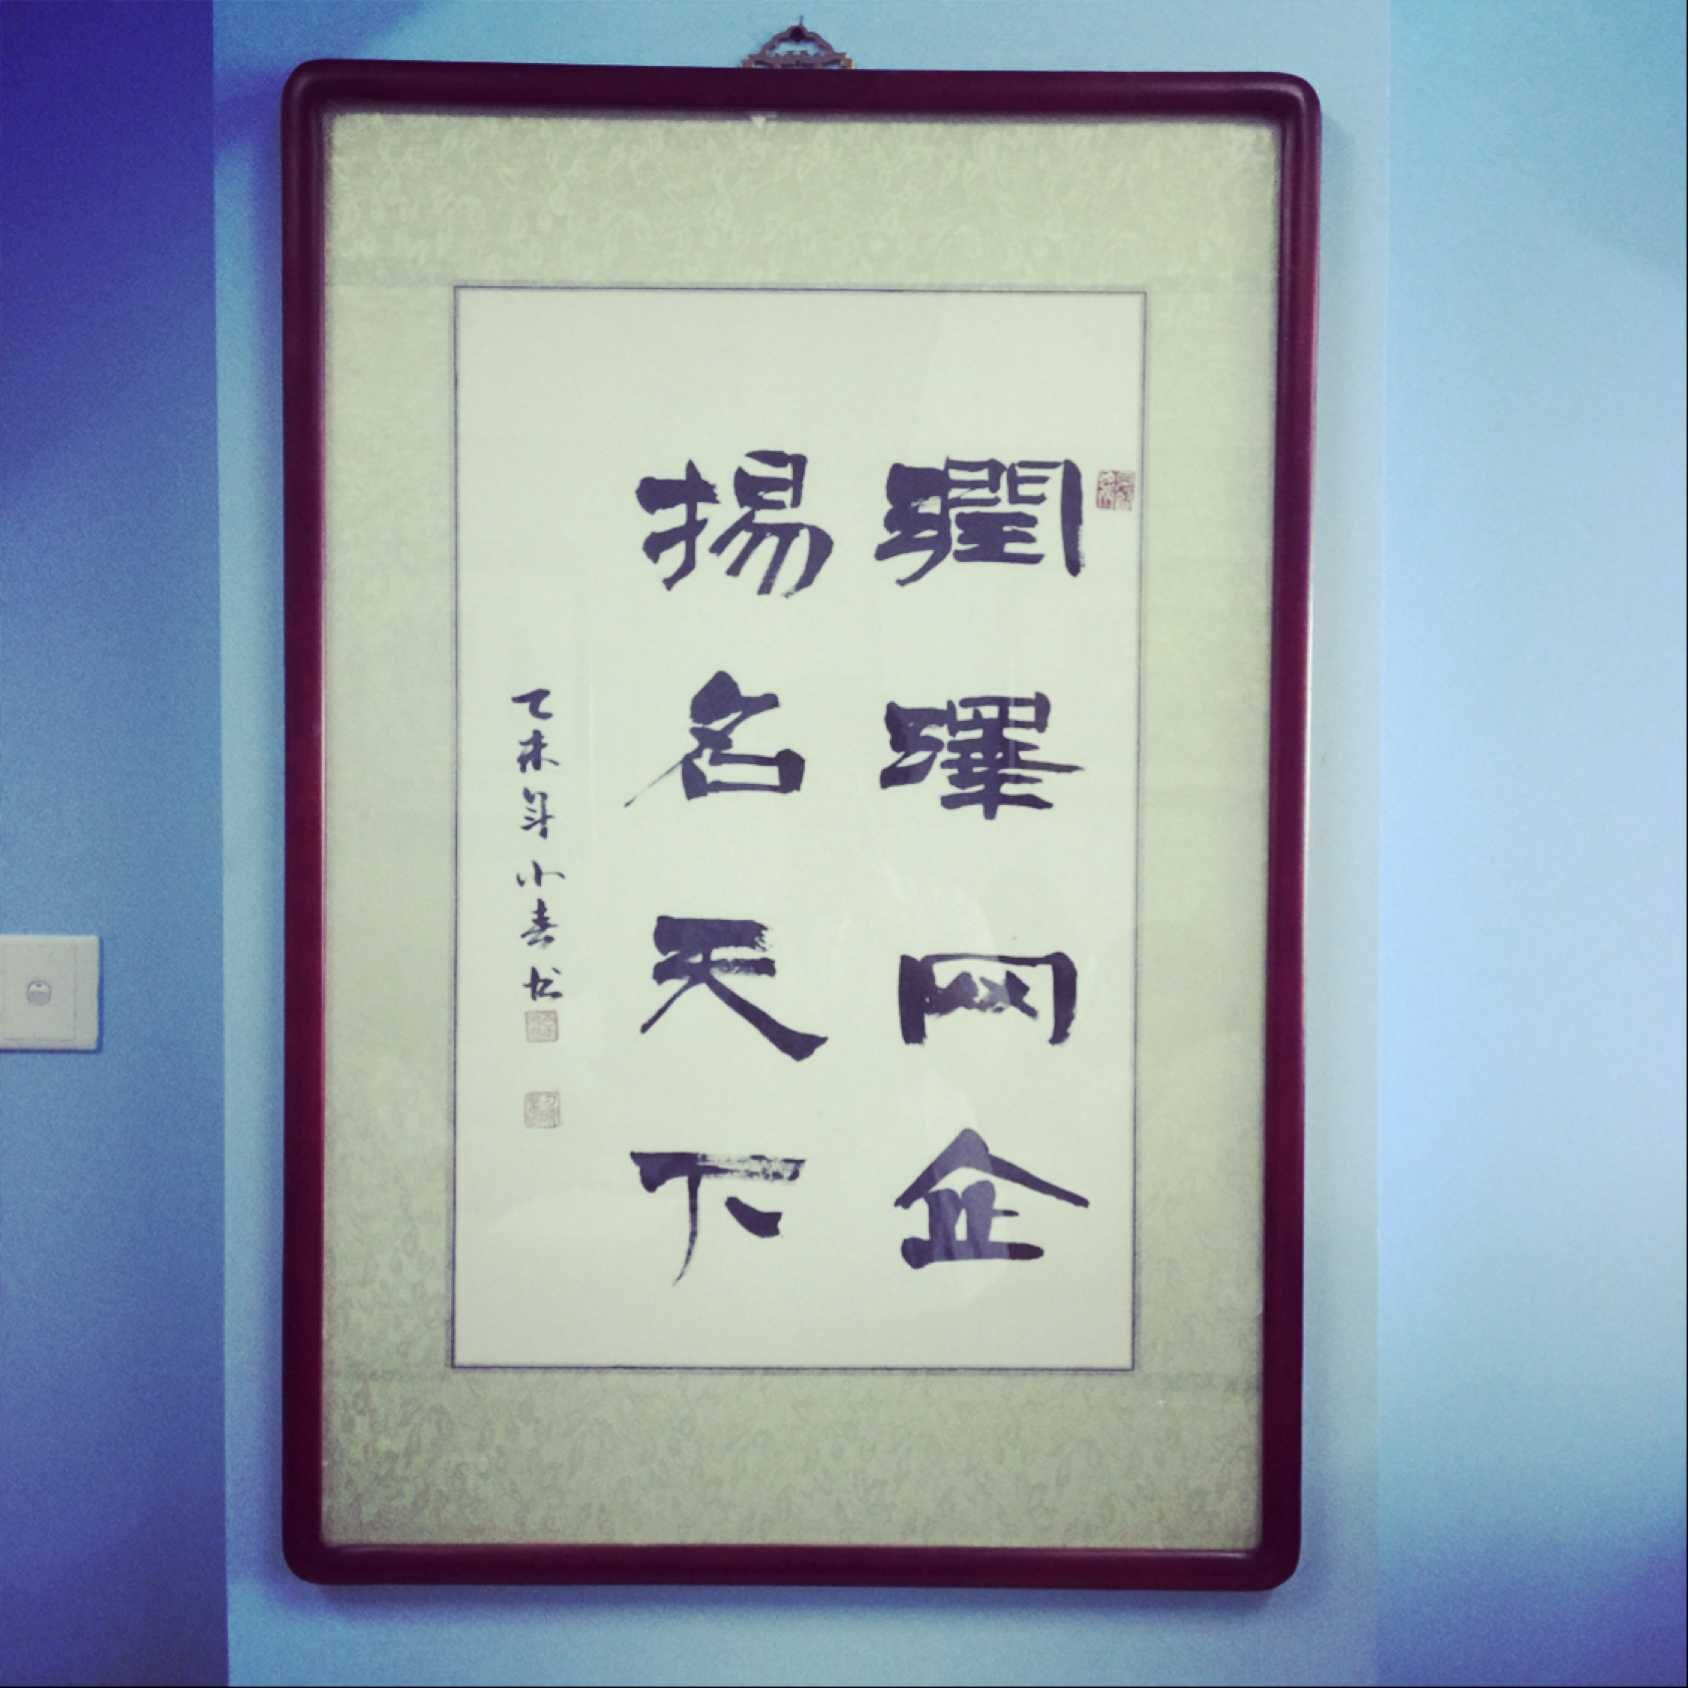 潤澤网企
揚名天下
乙未年小春书